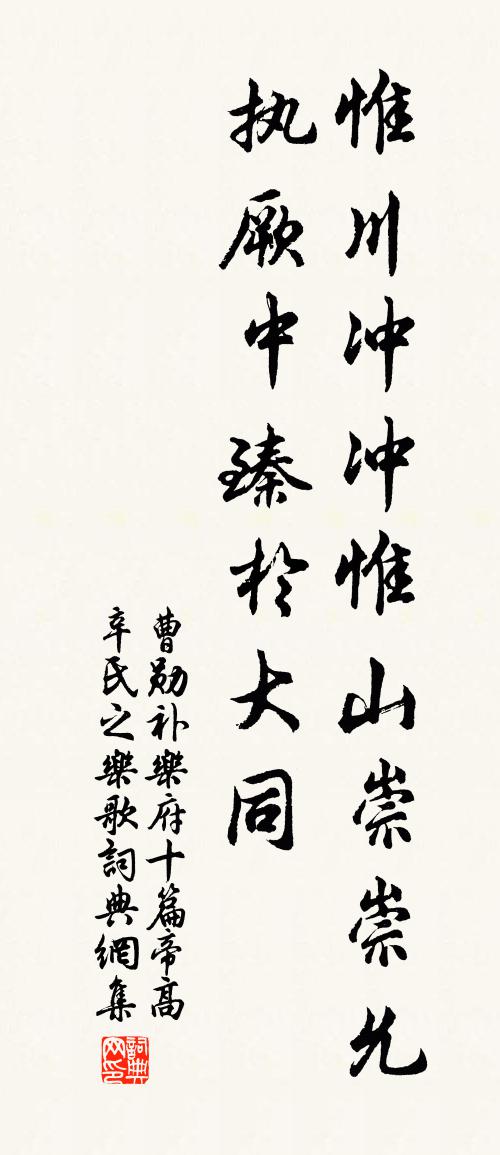 惟川冲冲惟山崇崇允
执厥中臻於大同
曹勋补樂府十篇帝高
辛氏之樂歌詞典網集
詞典
网印